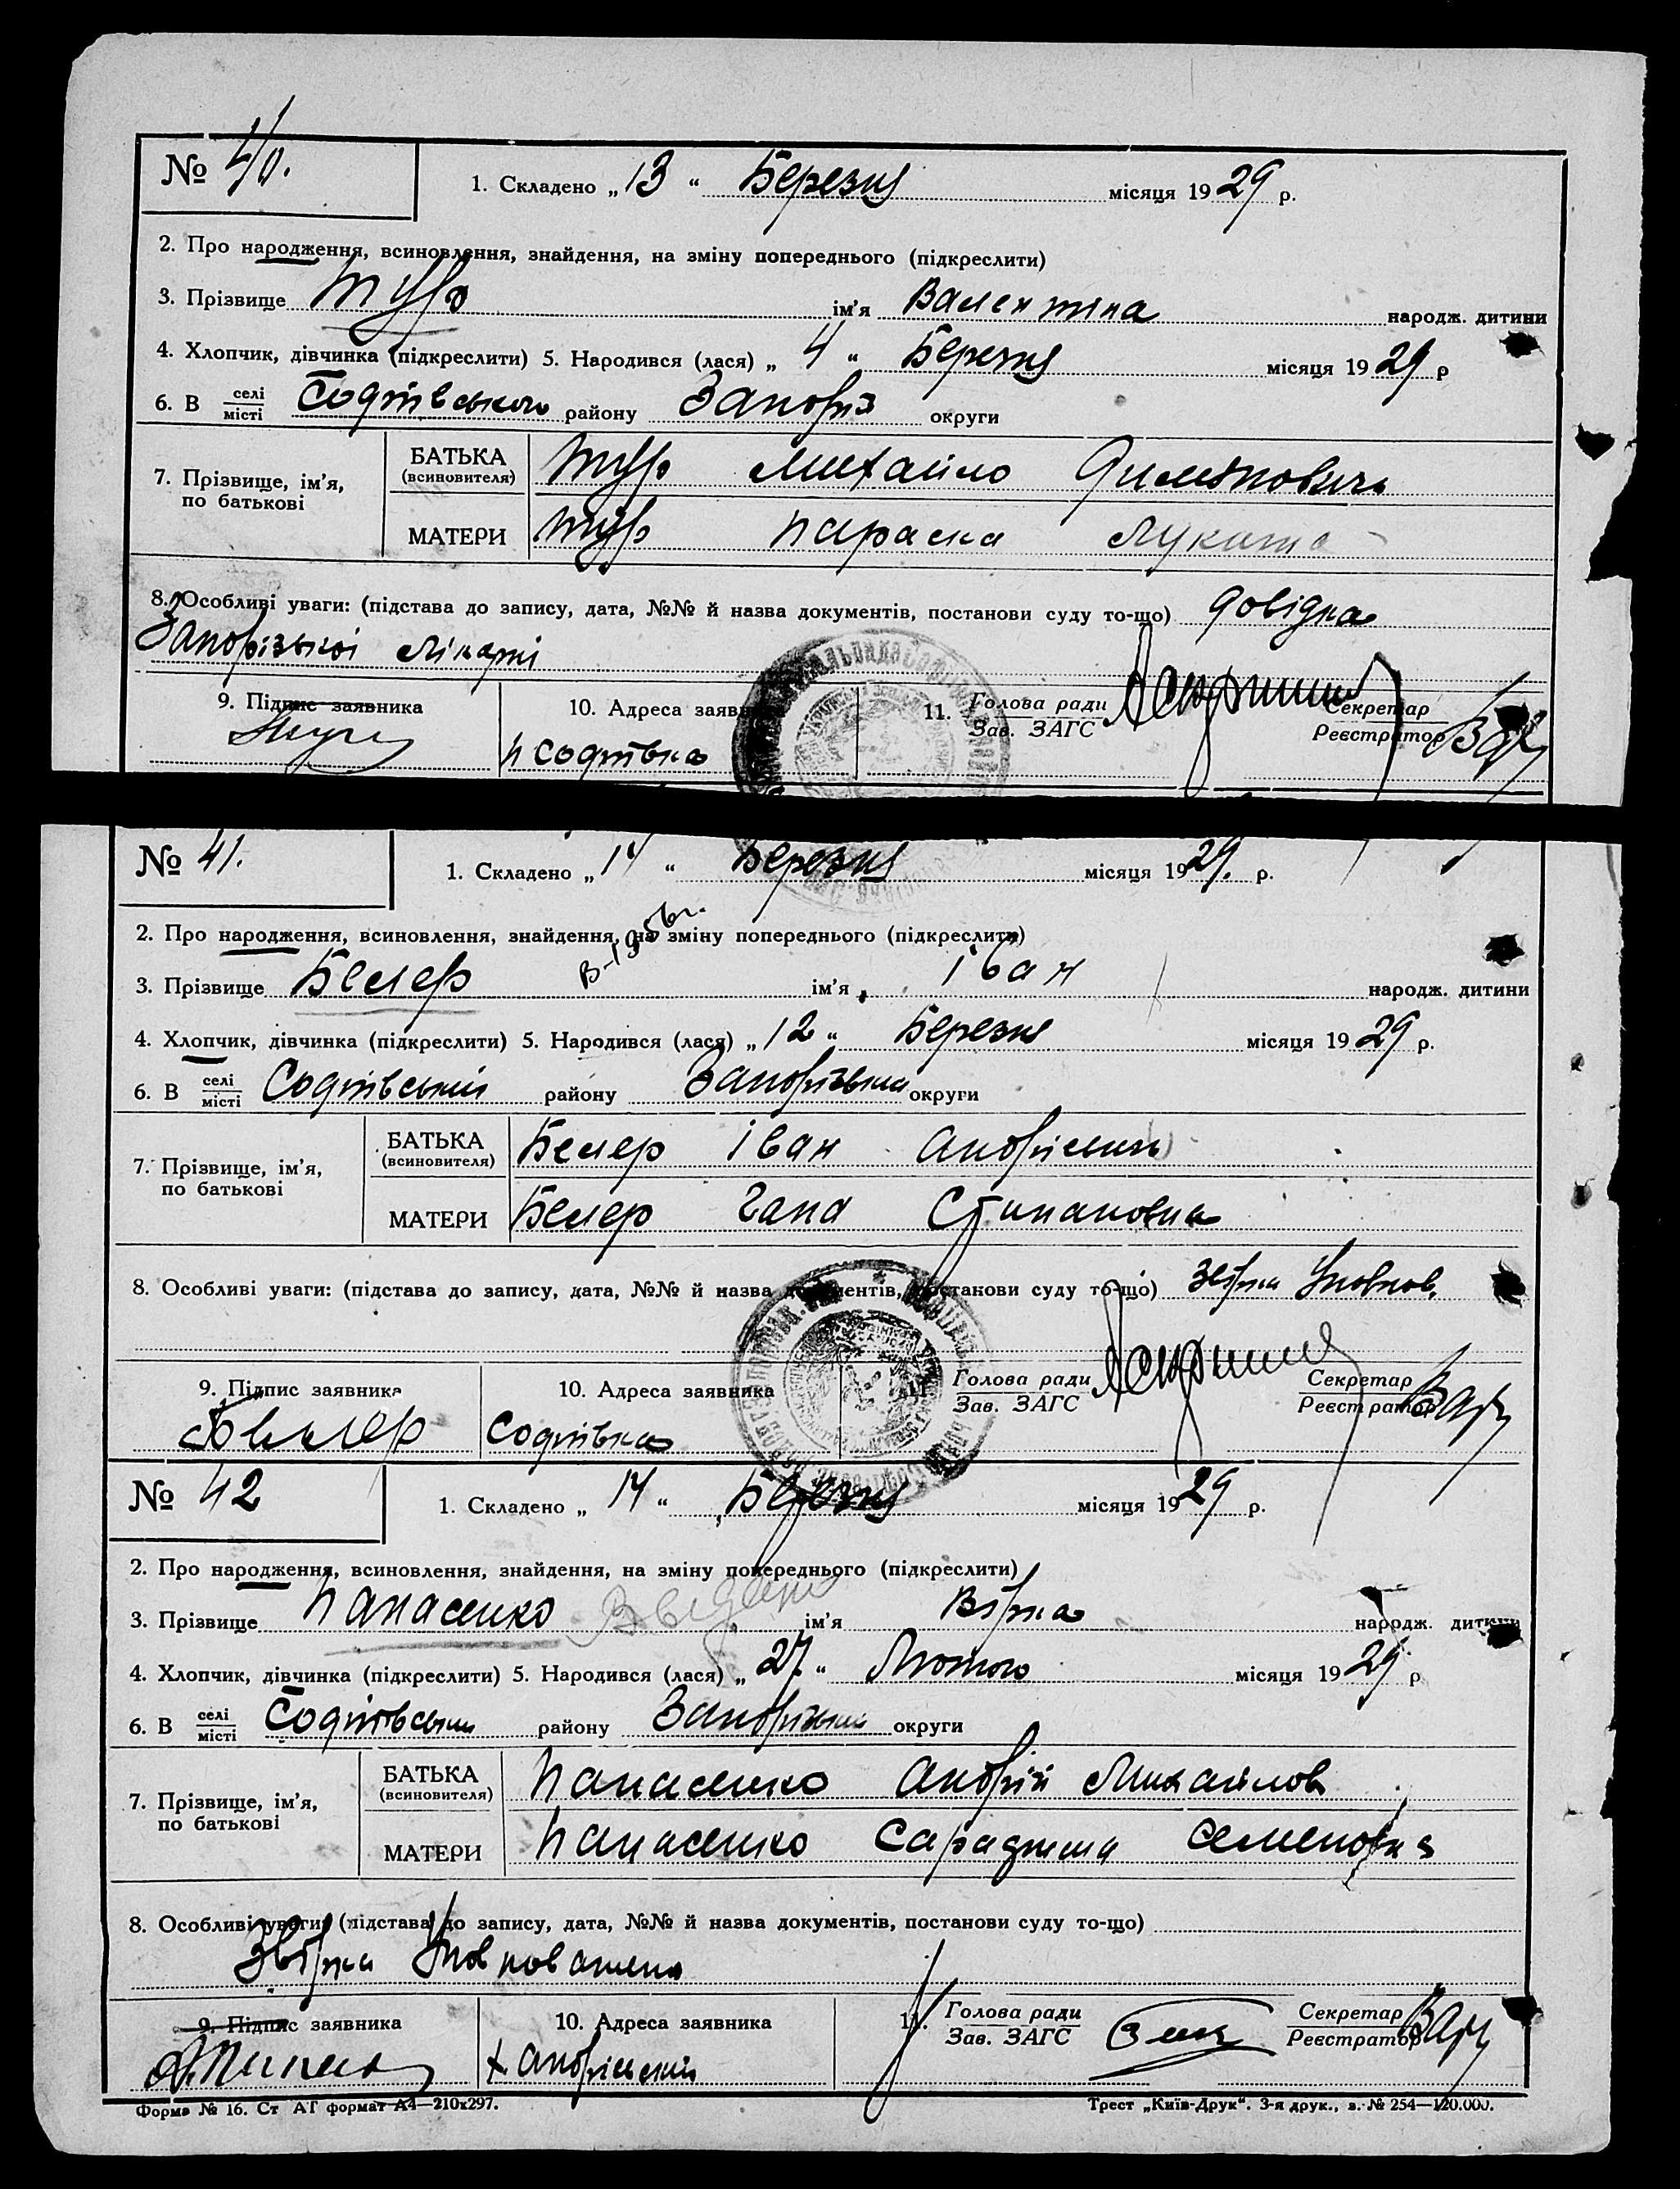 № 40. 1. Складено „ 13 “ Березня місяця 1929 р.
2. Про народження, всиновлення, знайдення, на зміну попереднього (підкреслити)
3. Прізвище Тур ім’я Валентина народж. дитини
4. Хлопчик, дівчинка (підкреслити) 5. Народився (лася) „ 4 “ Березня місяця 1929 р
6. В селі місті Софіївського району Запоріз округи
7. Прізвище, ім’я, по батькові
БАТЬКА (всиновителя) Тур Михайло
МАТЕРИ Тур Параска
8. Особливі уваги: (підстава до запису, дата, №№ й назва документів, постанови суду то-що) довідка
Запорізької лікарні
9. Підпис заявника 10. Адреса заявника 11. Голова ради Зав. ЗАГС Секретар Реєстратор
Софіївка
№ 41. 1. Складено „ 14 “ Березня місяця 1929. р.
2. Про народження, всиновлення, знайдення, на зміну попереднього (підкреслити)
В-1956г.
3. Прізвище Белер ім’я Іван народж. дитини
4. Хлопчик, дівчинка (підкреслити) 5. Народився (лася) „ 12 “ Березня місяця 1929 р.
6. В селі місті Софіївський району Запорізька округи
7. Прізвище, ім’я, по батькові
БАТЬКА (всиновителя) Белер Іван
МАТЕРИ Белер Гана Стипановна
8. Особливі уваги: (підстава до запису, дата, №№ й назва документів, постанови суду то-що)
9. Підпис заявника 10. Адреса заявника 11. Голова ради Зав. ЗАГС Секретар Реєстратор
Софіївка
№ 42 1. Складено „ 14 “ Березня місяця 1929 р.
2. Про народження, всиновлення, знайдення, на зміну попереднього (підкреслити)
3. Прізвище Панасенко ім’я Вірка народж. дитини
4. Хлопчик, дівчинка (підкреслити) 5. Народився (лася) „ 27 “ Лютого місяця 1929. р
6. В селі місті Софіївський району Запорізький округи
7. Прізвище, ім’я, по батькові
БАТЬКА (всиновителя) Панасенко Андрій Михайлов
МАТЕРИ Панасенко Семеновна
8. Особливі уваги: (підстава до запису, дата, №№ й назва документів, постанови суду то-що)
9. Підпис заявника 10. Адреса заявника 11. Голова ради Зав. ЗАГС Секретар Реєстратор
Форма № 16. Ст АТ формат А4—210х297. Трест „Київ-Друк“. 3-я друк., з. № 254—120.000.